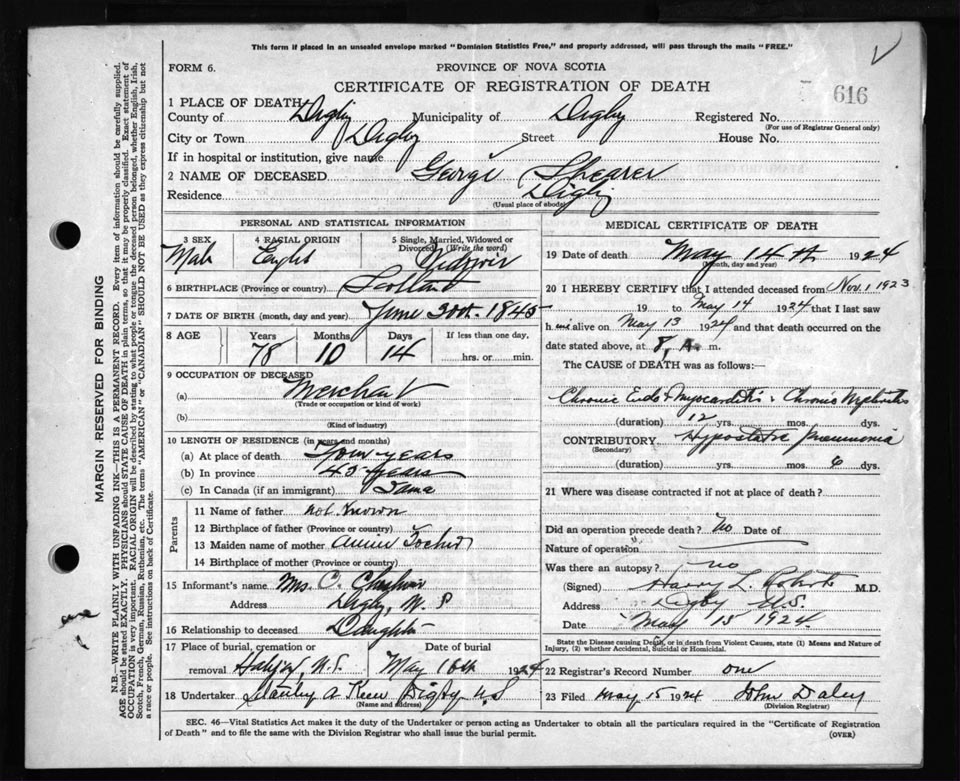 This form if placed in an unsealed envelope marked "Dominion Statistics Free," and properly addressed, will pass through the mails "FREE."
FORM 6.
PROVINCE OF NOVA SCOTIA
CERTIFICATE OF REGISTRATION OF DEATH
616
1 PLACE OF DEATH
County of Digby Municipality of Digby Registered No.
(For use of Registrar General only)
City or Town Digby Street House No.
If in hospital or institution, give name
2 NAME OF DECEASED George Shearer
Residence Digby
(Usual place of abode)
PERSONAL AND STATISTICAL INFORMATION
3 SEX 4 RACIAL ORIGIN 5 Single, Married, Widowed or Divorced (Write the word)
Male
6 BIRTHPLACE (Province or country) Scotland
7 DATE OF BIRTH (month, day and year) June 30th 1845
8 AGE Years Months Days If less than one day,
78 10 14 hrs. or min.
9 OCCUPATION OF DECEASED
(a) Merchant
(Trade or occupation or kind of work)
(b)
(Kind of industry)
10 LENGTH OF RESIDENCE (in years and months)
(a) At place of death Four years
(b) In province 45 years
(c) In Canada (if an immigrant) Same
Parents
11 Name of father not Known
12 Birthplace of father (Province or country)
13 Maiden name of mother Annie
14 Birthplace of mother (Province or country)
15 Informant's name Mrs. C.
Address Digby, N.S
16 Relationship to deceased Daughter
17 Place of burial, cremation or Date of burial
removal Halifax, N.S. May 16th 1924
18 Undertaker Stanley A. Keen Digby N.S
(Name and address)
MEDICAL CERTIFICATE OF DEATH
19 Date of death May 14th 1924
(Month, day and year)
20 I HEREBY CERTIFY that I attended deceased from Nov. 1 1923
19 to May 14 1924 that I last saw
h im alive on May 13 1924 and that death occurred on
date stated above, at 8, A. m.
The CAUSE of DEATH was as follows:—
Chronic Endo & Myocarditis & Chronic Nephritis
(duration) 12 yrs. mos. dys.
CONTRIBUTORY Hypostatic Pneumonia
(Secondary)
(duration) yrs. mos. 6 dys.
21 Where was disease contracted if not at place of death?
Did an operation precede death? No Date of
Nature of operation
Was there an autopsy? no
(Signed) Harry L. M.D.
Address Digby N.S.
May 15 1924
State the Disease causing Death, or in death from Violent Causes, state (1) Means and Nature of Injury, (2) whether Accidental, Suicidal or Homicidal.
22 Registrar's Record Number one
23 Filed May 15 1924 John Daley
(Division Registrar)
SEC. 46—Vital Statistics Act makes it the duty of the Undertaker or person acting as Undertaker to obtain all the particulars required in the "Certificate of Registration
of Death" and to file the same with the Division Registrar who shall issue the burial permit.
(OVER)
MARGIN RESERVED FOR BINDING
N.B.—WRITE PLAINLY WITH UNFADING INK—THIS IS A PERMANENT RECORD. Every item of information should be carefully supplied.
AGE should be stated EXACTLY. PHYSICIANS should STATE CAUSE OF DEATH in plain terms, so that it may be properly classified. Exact statement of
OCCUPATION is very important. RACIAL ORIGIN will be described by stating to what people or tongue the deceased person belonged, whether English, Irish,
Scotch, French, German, Russian, Ruthenian, etc. The terms "AMERICAN" or "CANADIAN" SHOULD NOT BE USED as they express citizenship but not
a race or people. See instructions on back of Certificate.